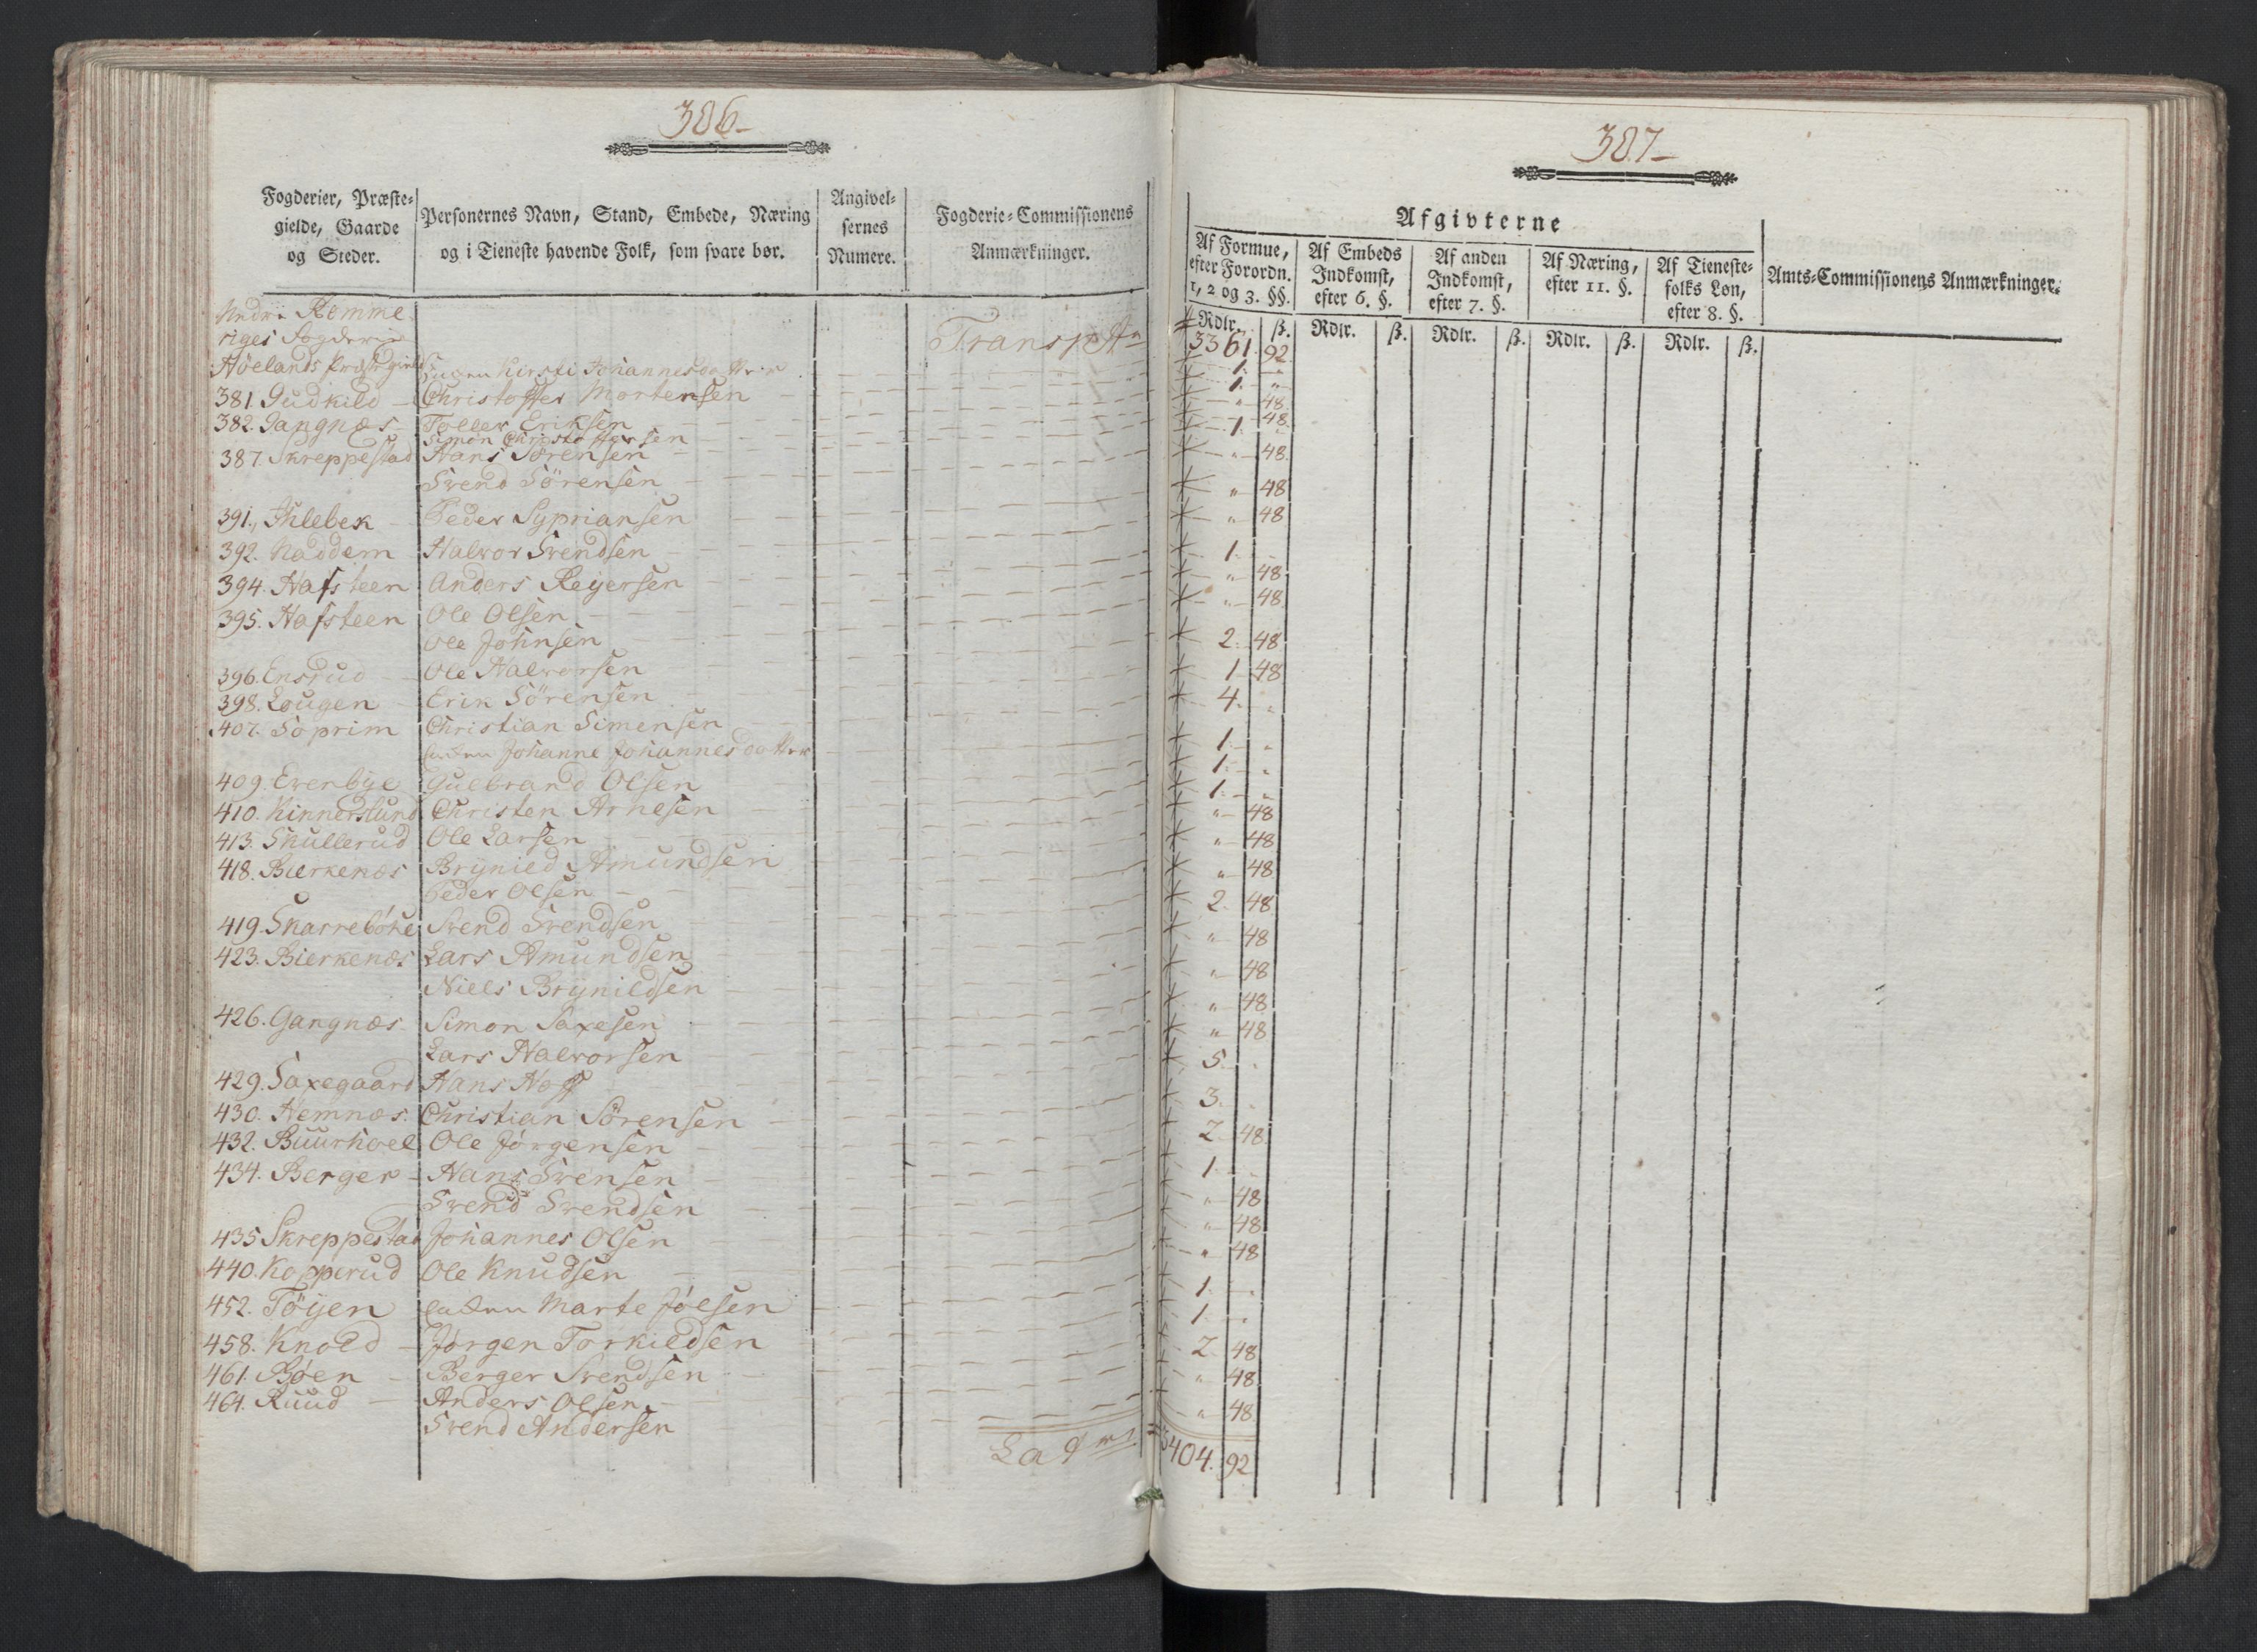 386-
Fogderier, Præste-
gielde, Gaarde
og Steder.
Personernes Navn, Stand, Embede, Næring
og i Tieneste havende Folk, som svare bør.
Angivel-
sernes
Numere.
Fogderie-Commissionens
Anmærkninger.
Nedre Romme
riges Fogderie
Transpt
Höelands Præstegield
Kirsti Johannesdatter
381. Gudkild - Christoffer Mortensen
382. Gangnæs - Toller Eriksen
Simon Christoffersen
387. Skreppestad Hans Sörensen
Svend Sörensen
391. Ihlebek - Peder Sypriansen
392. Naddem Halvor Svendsen
394. Hafsteen Anders Reyersen
395. Hafsteen Ole Olsen
Ole Johnsen
396. Ensrud - Ole Halvorsen
398. Lougen - Erik Sörensen
407. Soprim Christian Simensen
Johanne Johannesdatter
409. Evenbye Gulbrand Olsen
410. Kinnerslund Christen Arnesen
413. Skullerud Ole Larsen
418. Bierkenæs Brynild Amundsen
Peder Olsen
419. Skarreböhl Svend Svendsen
423. Bierkenæs Lars Amundsen
Niels Brynildsen
426. Gangnæs. Simon Saxesen
Lars Halvorsen
429. Saxegaard Hans Hoff
430. Hemnæs. Christian Sörensen
432. Buurhoel Ole Jörgensen
434. Berger - Hans Svensen
Svend Svendsen
435 Skreppestad Johannes Olsen
440. Kopperud Ole Knudsen
452. Töyen Marte Joelsen
458. Knold - Jörgen Torkildsen
461. Böen - Berger Svendsen
464. Ruud - Anders Olsen
Svend Andersen
387-
Afgivterne
Af Formue,
efter Forordn.
1, 2 og 3. §§.
Af Embeds
Indkomst,
efter 6. §.
Af anden
Indkomst,
efter 7. §.
Af Næring,
efter 11. §.
Af Tieneste-
folks Løn,
efter 8. §.
Amts-Commissionens Anmærkninger.
Rdlr. ß. Rdlr. ß. Rdlr. ß. Rdlr. ß. Rdlr. ß.
3361. 92.
1. "
1. "
" 48
" 48
1. "
" 48
" 48
" 48
1. -
" 48
" 48
2. 48
1. 48
4. "
1. "
1. "
1. "
" 48
" 48
" 48
2. 48
" 48
" 48
" 48
" 48
5. "
3. "
2. 48
1. -
" 48
" 48
" 48
1. -
1. "
2. 48
" 48
" 48
3404. 92